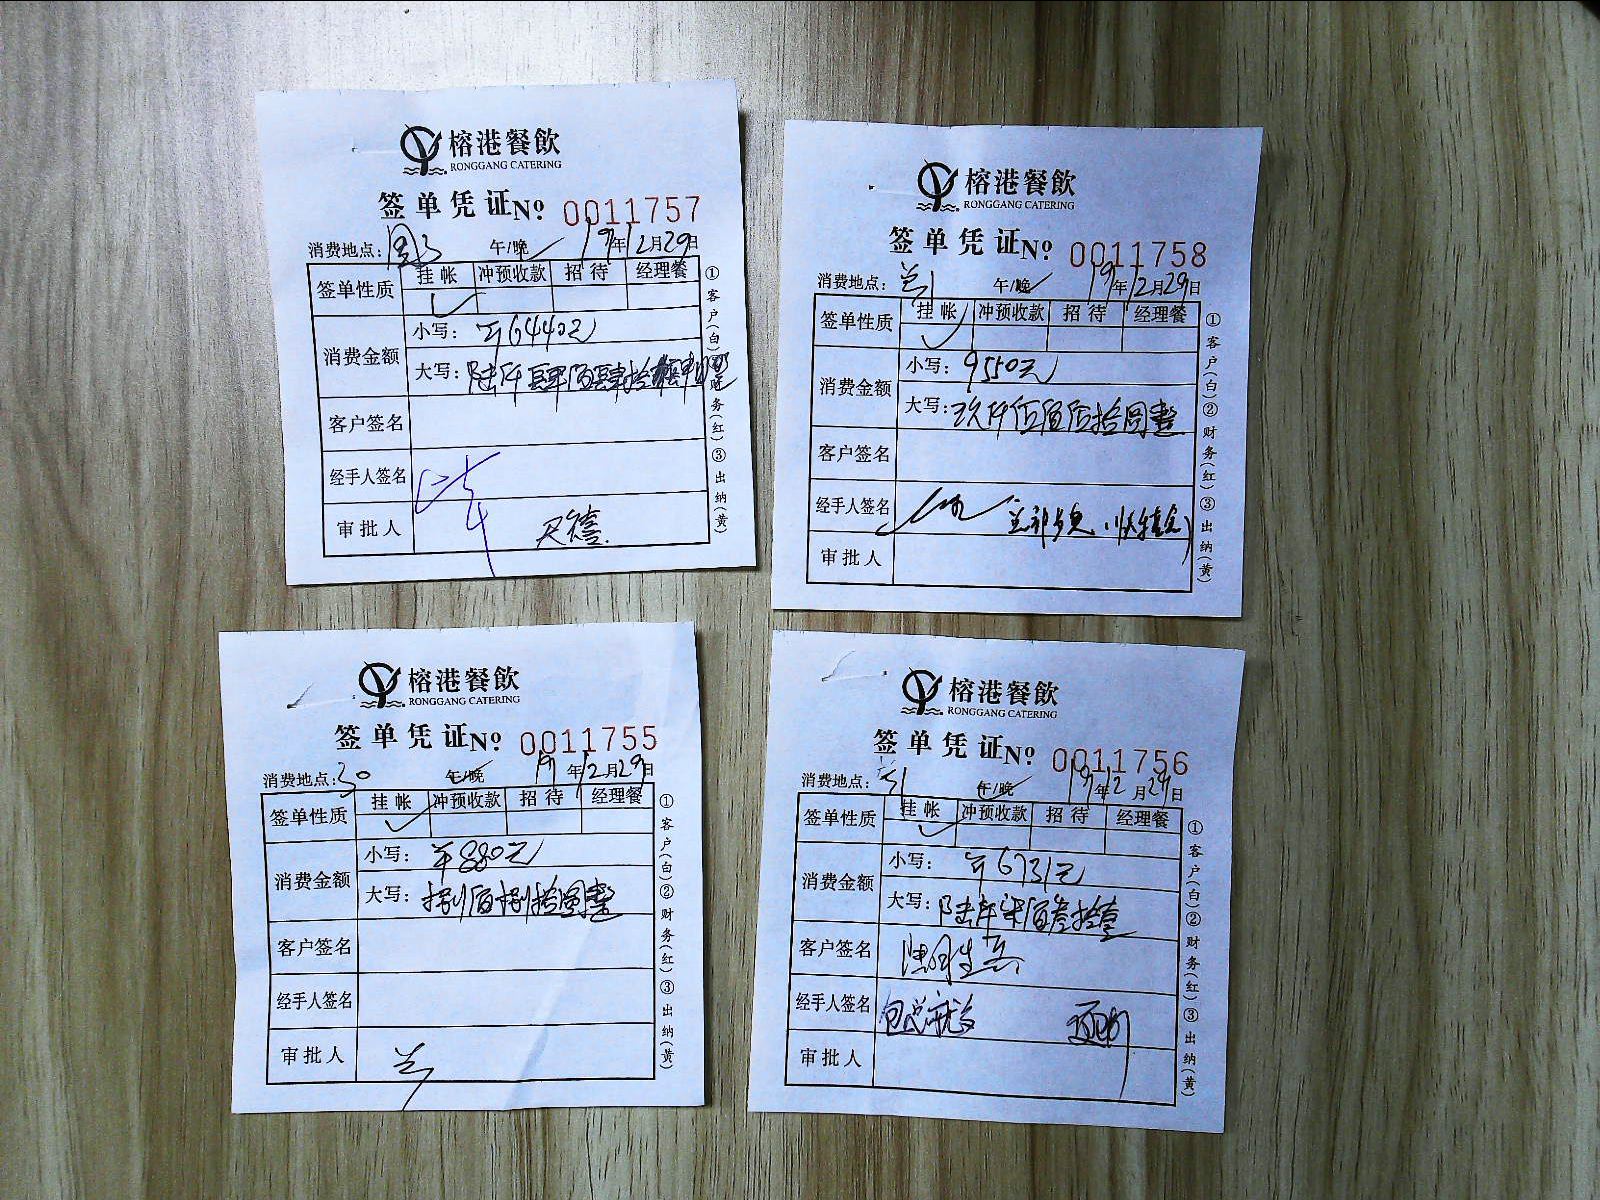 榕港餐飲
RONGGANG CATERING
签单凭证 No 0011757
消费地点: 午/晚 19年12月29日
签单性质 挂帐 冲预收款 招待 经理餐
消费金额
小写: ¥6440元
大写: 陆仟肆佰肆拾
客户签名
经手人签名
审批人
①客户(白)②财务(红)③出纳(黄)
榕港餐飲
RONGGANG CATERING
签单凭证 No 0011758
消费地点: 兰1 午/晚 19年12月29日
签单性质 挂帐 冲预收款 招待 经理餐
消费金额
小写: 9550元
大写: 玖仟伍佰伍拾圆整
客户签名
经手人签名
审批人
①客户(白)②财务(红)③出纳(黄)
榕港餐飲
RONGGANG CATERING
签单凭证 No 0011755
消费地点: 30 午/晚 19年12月29日
签单性质 挂帐 冲预收款 招待 经理餐
消费金额
小写: ¥880元
大写: 捌佰捌拾圆整
客户签名
经手人签名
审批人
①客户(白)②财务(红)③出纳(黄)
榕港餐飲
RONGGANG CATERING
签单凭证 No 0011756
消费地点: 午/晚 19年12月29日
签单性质 挂帐 冲预收款 招待 经理餐
消费金额
小写: ¥6731元
大写: 陆仟柒佰叁拾壹
客户签名
经手人签名
审批人
①客户(白)②财务(红)③出纳(黄)